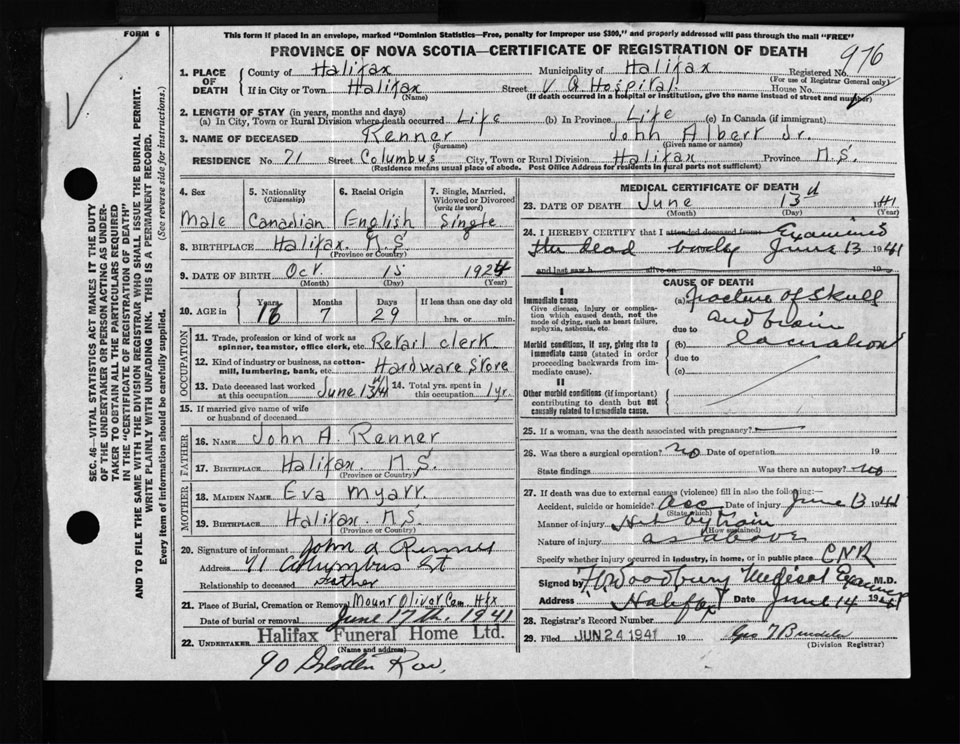 FORM 6
This form if placed in an envelope, marked "Dominion Statistics—Free, penalty for improper use $300," and properly addressed will pass through the mail "FREE"
PROVINCE OF NOVA SCOTIA—CERTIFICATE OF REGISTRATION OF DEATH
976
SEC. 46—VITAL STATISTICS ACT MAKES IT THE DUTY
OF THE UNDERTAKER OR PERSON ACTING AS UNDER-
TAKER TO OBTAIN ALL THE PARTICULARS REQUIRED
IN THE "CERTIFICATE OF REGISTRATION OF DEATH"
AND TO FILE THE SAME WITH THE DIVISION REGISTRAR WHO SHALL ISSUE THE BURIAL PERMIT.
WRITE PLAINLY WITH UNFADING INK. THIS IS A PERMANENT RECORD.
Every item of information should be carefully supplied. (See reverse side for instructions.)
1. PLACE OF DEATH County of Halifax Municipality of Halifax Registered No.
(For use of Registrar General only)
If in City or Town Halifax Street V. G. Hospital. House No.
(Name) (If death occurred in a hospital or institution, give the name instead of street and number)
2. LENGTH OF STAY (in years, months and days)
(a) In City, Town or Rural Division where death occurred Life (b) In Province Life (c) In Canada (if immigrant)
3. NAME OF DECEASED Renner John Albert Jr.
(Surname) (Given name or names)
RESIDENCE No. 71 Street Columbus City, Town or Rural Division Halifax Province N.S.
(Residence means usual place of abode. Post Office Address for residents in rural parts not sufficient)
4. Sex 5. Nationality (Citizenship) 6. Racial Origin 7. Single, Married, Widowed or Divorced (write the word)
Male Canadian English Single
8. BIRTHPLACE Halifax. N.S.
(Province or Country)
9. DATE OF BIRTH Oct. 15 1924
(Month) (Day) (Year)
10. AGE in Years Months Days If less than one day old
16 7 29 hrs. or min.
OCCUPATION
11. Trade, profession or kind of work as spinner, teamster, office clerk, etc. Retail clerk.
12. Kind of industry or business, as cotton-mill, lumbering, bank, etc. Hardware Store
13. Date deceased last worked at this occupation June 13/41 14. Total yrs. spent in this occupation 1 yr.
15. If married give name of wife or husband of deceased
FATHER
16. NAME John A. Renner
17. BIRTHPLACE Halifax. N.S.
(Province or Country)
MOTHER
18. MAIDEN NAME Eva Myarr.
19. BIRTHPLACE Halifax. N.S.
(Province or Country)
20. Signature of informant John A Renner
Address 71 Columbus St
Relationship to deceased Father
21. Place of Burial, Cremation or Removal Mount Olivet Cem. Hfx
Date of burial or removal June 17th. 1941
22. UNDERTAKER Halifax Funeral Home Ltd.
(Name and address)
90 Row.
MEDICAL CERTIFICATE OF DEATH
23. DATE OF DEATH June 13th 1941
(Month) (Day) (Year)
24. I HEREBY CERTIFY that I attended deceased from Examined
the dead body June 13 1941
and last saw h alive on 19
CAUSE OF DEATH
I
Immediate cause
Give disease, injury or complication which caused death, not the mode of dying, such as heart failure, asphyxia, asthenia, etc.
(a) fracture of skull
and brain
due to
(b) laceration
due to
(c)
Morbid conditions, if any, giving rise to immediate cause (stated in order proceeding backwards from immediate cause).
II
Other morbid conditions (if important) contributing to death but not causally related to immediate cause.
25. If a woman, was the death associated with pregnancy?
26. Was there a surgical operation? no Date of operation 19
State findings Was there an autopsy? no
27. If death was due to external causes (violence) fill in also the following:
Accident, suicide or homicide? acc Date of injury June 13 1941
(State which)
Manner of injury Hit by train
(How sustained)
Nature of injury as above
Specify whether injury occurred in industry, in home, or in public place CNR
Signed by Woodbury Medical Examiner M.D.
Address Halifax Date June 14 1941
28. Registrar's Record Number
29. Filed JUN 24 1941 19 Geo T
(Division Registrar)